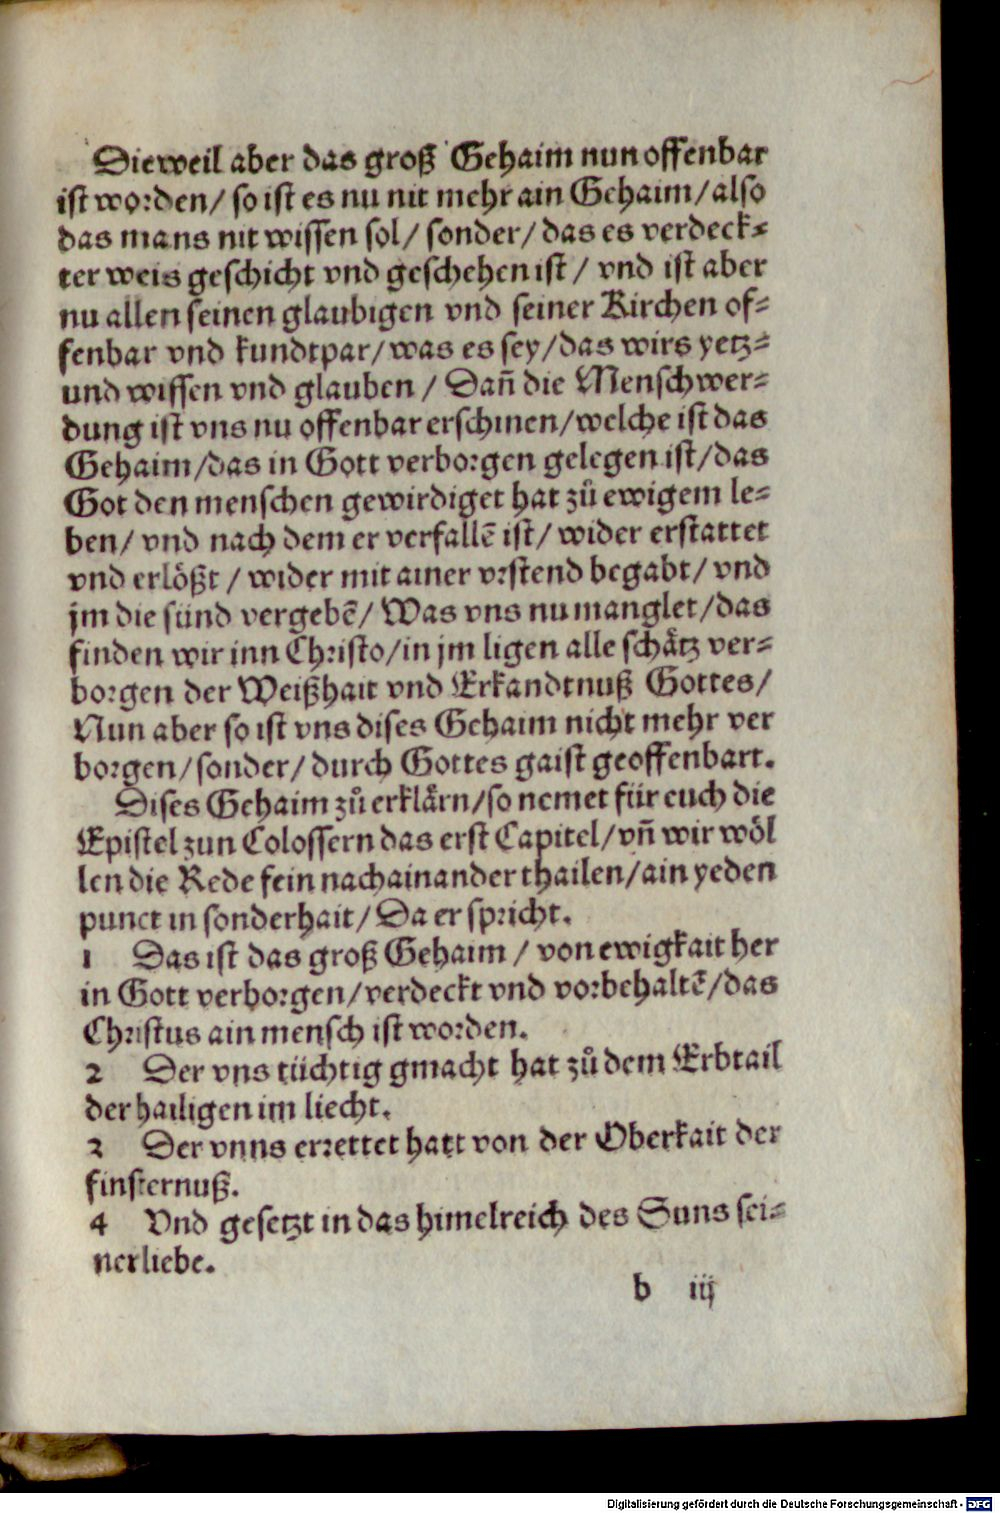 Dieweil aber das groß Gehaim nun offenbar
ist worden/ so ist es nu nit mehr ain Gehaim/also
das mans nit wissen sol/ sonder/ das es verdeck-
ter weis geschicht vnd geschehen ist/ vnd ist aber
nu allen seinen glaubigen vnd seiner Kirchen of-
fenbar vnd kundtpar/was es sey/das wirs yetz-
und wissen vnd glauben/ Dañ die Menschwer-
dung ist vns nu offenbar erschinen/welche ist das
Gehaim/das in Gott verborgen gelegen ist/das
Got den menschen gewirdiget hat zů ewigem le-
ben/ vnd nach dem er verfallẽ ist/ wider erstattet
vnd erlößt/ wider mit ainer vrstend begabt/ vnd
jm die sünd vergebẽ/ Was vns nu manglet/das
finden wir inn Christo/in jm ligen alle schätz ver-
borgen der Weißhait vnd Erkandtnuß Gottes/
Nun aber so ist vns dises Gehaim nicht mehr ver
borgen/sonder/ durch Gottes gaist geoffenbart.
Dises Gehaim zů erklärn/so nemet für euch die
Epistel zun Colossern das erst Capitel/vñ wir wöl
len die Rede fein nachainander thailen/ain yeden
punct in sonderhait/ Da er spricht.
1 Das ist das groß Gehaim/ von ewigkait her
in Gott verborgen/verdeckt vnd vorbehaltẽ/das
Christus ain mensch ist worden.
2 Der vns tüchtig gmacht hat zů dem Erbtail
der hailigen im liecht.
3 Der vnns errettet hatt von der Oberkait der
finsternuß.
4 Vnd gesetzt in das himelreich des Suns sei-
ner liebe.
b iij
Digitalisierung gefördert durch die Deutsche Forschungsgemeinschaft - DFG